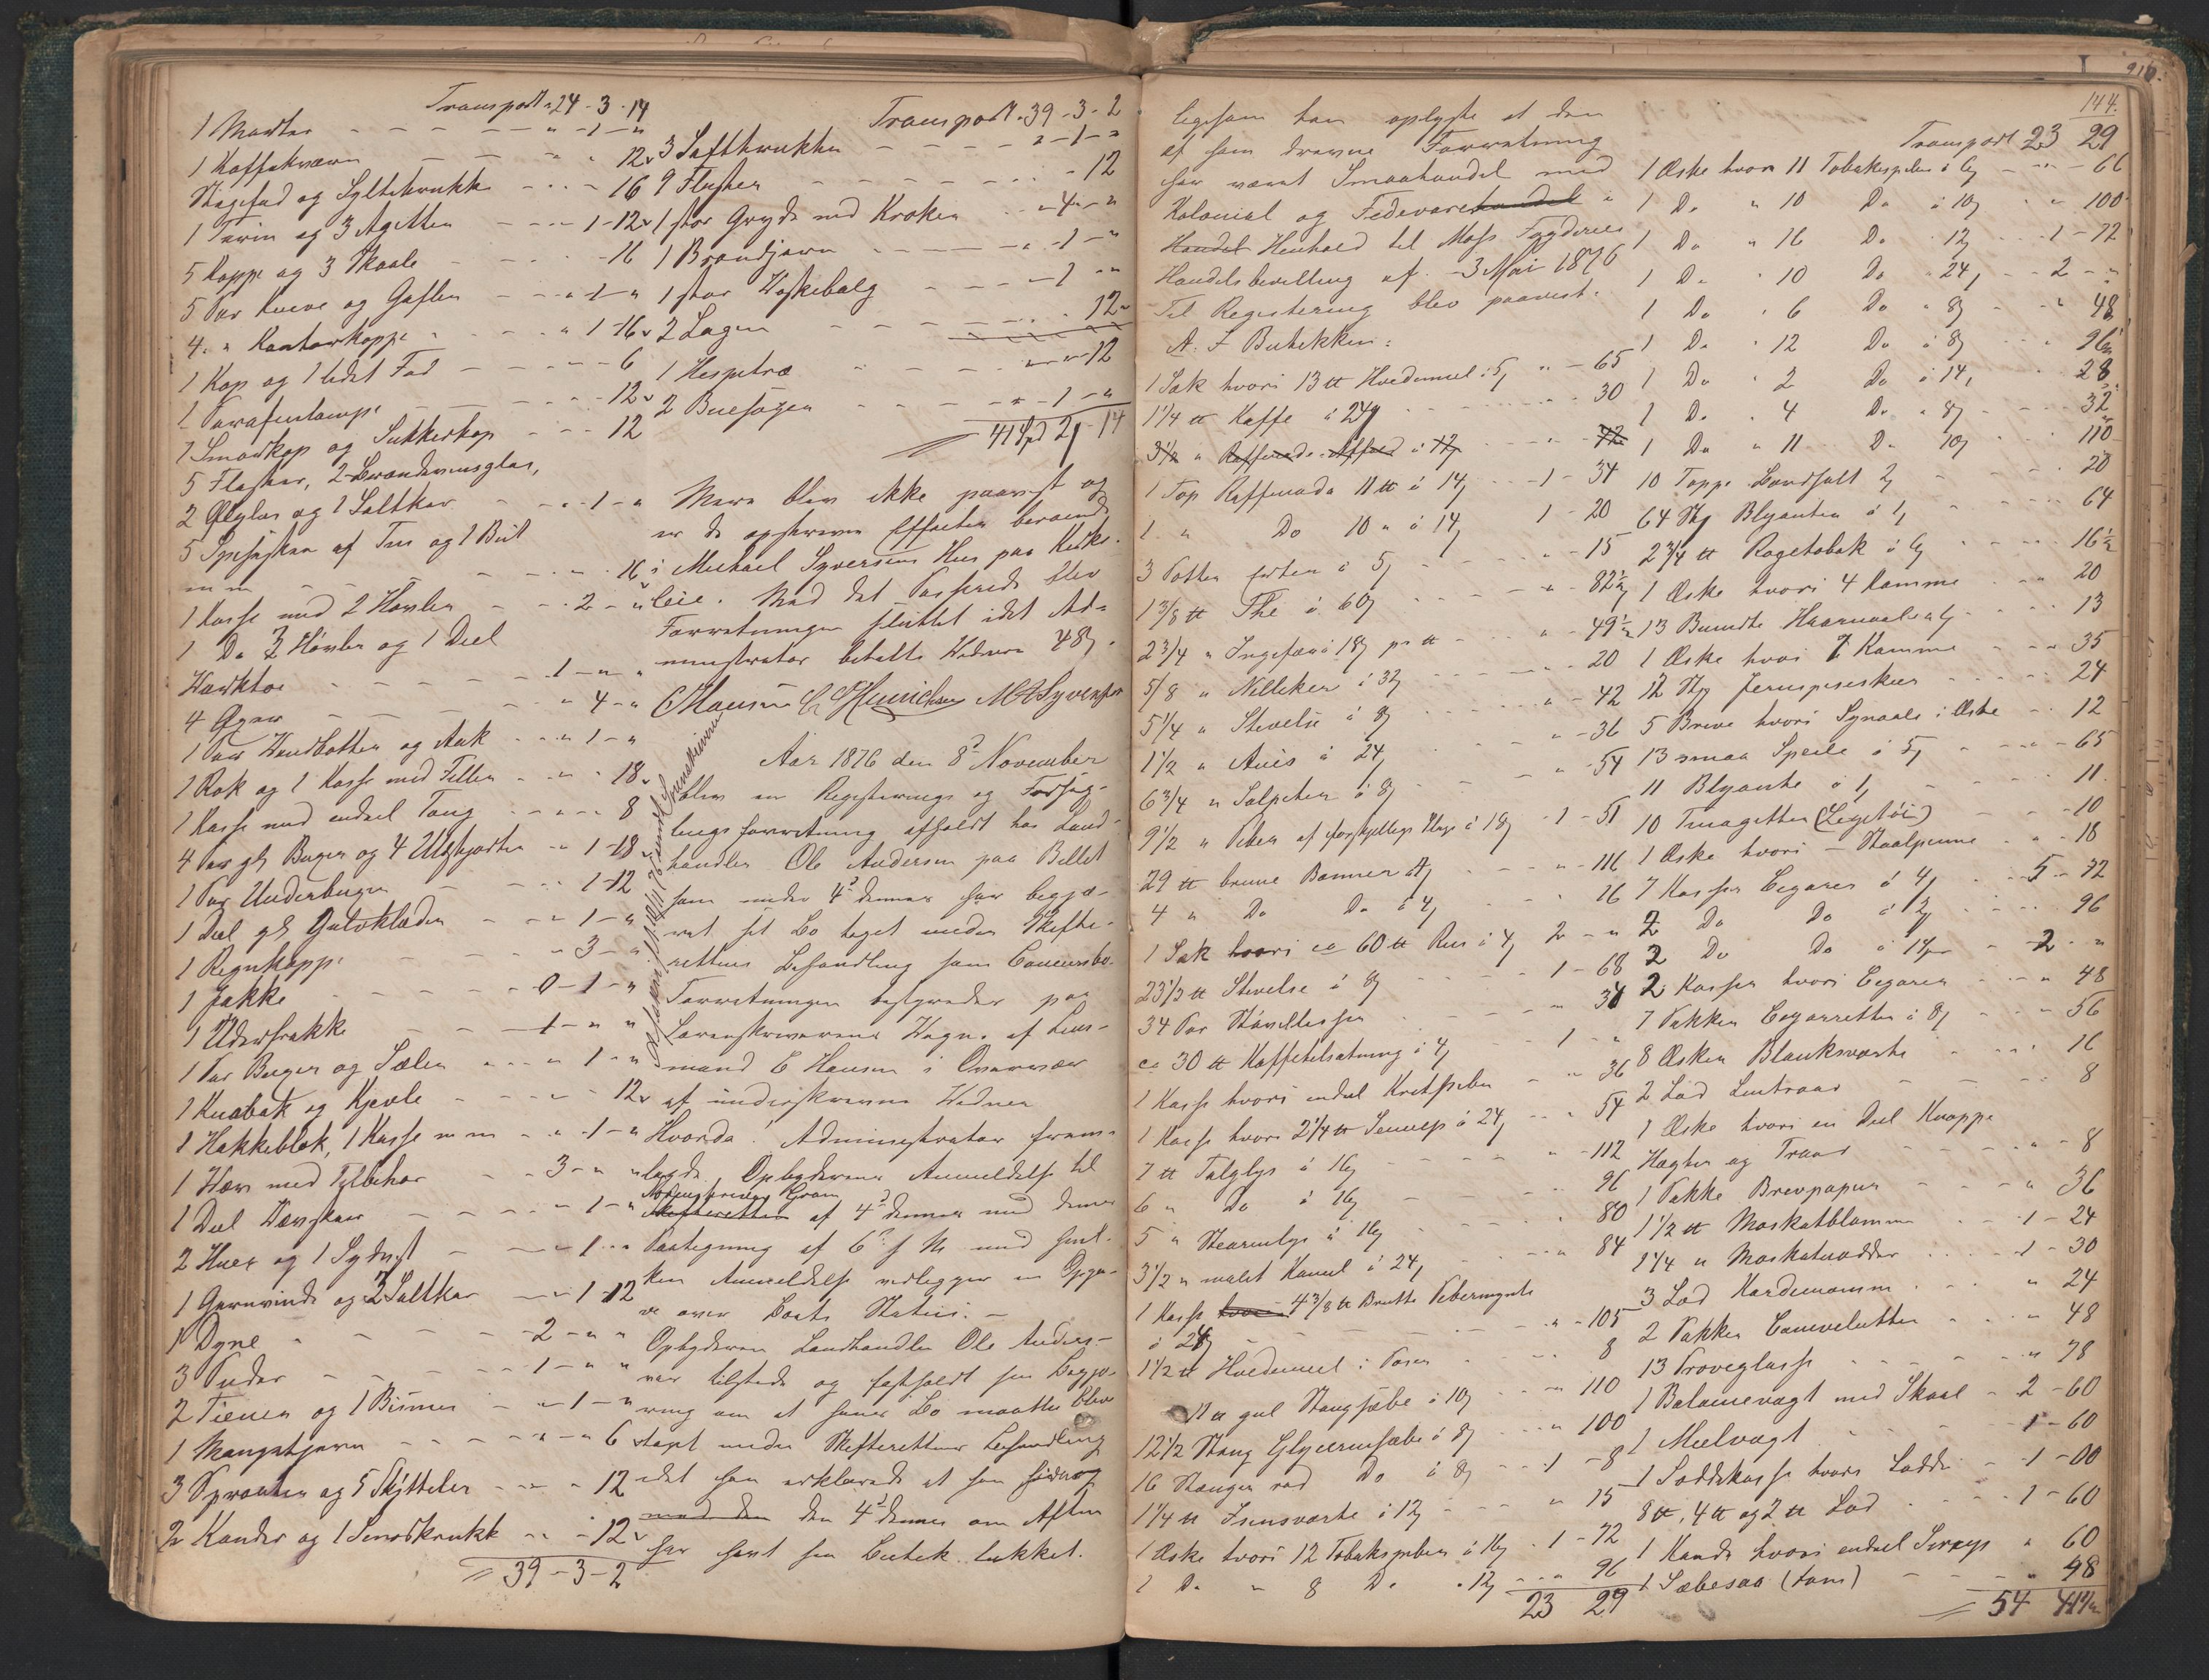 Transport 24-3-14
1 Morter - - - " -1- "
1 Kaffekværn - - - " " 12
Stegefad og Syltekrukke - - - 16
1 Terin og 3 Asietter - - 1-12
5 Koppe og 3 Skaale - - - 16
5 Par Knive og Gafler - - " -1- "
4 " Kontorkoppe - - " 1-16
1 Kop og 1 lidet Fad - - - 6
1 Parafinlampe - - - 12
1 Smørkop og Sukkerkop - - - 12
5 Flasker, 2 Brændevinsglas,
2 Ølglas og 1 Saltkar - - -1- "
5 Spiseskeer af Tin og 1 Brit
m m - - - 16
1 Kasse med 2 Høvler - - 2- "
1 Do 3 Høvler og 1 Deel
Værktøi - - - 1- " "
4 Øxer - - - " 4- "
1 Par Vandbøtter og Aak - - " 1- "
1 Rok og 1 Kasse med Filler - - " 18
1 Kasse med endeel Toug - - - 8
4 Par gl Buxer og 4 Uldskjorter - " 1-18
1 Par Underbuxer - - 1-12
1 Deel gl Gulvklæder - - - 1- "
1 Regnkappe - - - " 3- "
1 Jakke - - - 0-1- "
1 Yderfrakke - - - 1- " "
1 Par Buxer og Sæler - - " 1- "
1 Knabak og Kjevle - - - 12
1 Hakkeblok, 1 Kasse m m - " -1- "
1 Væv med Tilbehør - - 3- " "
1 Deel Vævskeer - - - " 1- "
2 Huer og 1 Sydvest - - - 1- "
1 Garnvinde og 2 Saltkar - - 1-12
1 Dyne - - - 2- " "
3 Puder - - - 1- " "
2 Tiener og 1 Bismer - - " 1- "
1 Mangetjern - - - " - " 6
3 Sprøiter og 5 Skytteler - - - 12
2 Kander og 1 Smørkrukke - - - 12
= 39-3-2
Transport 39-3-2
3 Saftkrukker - - - " -1- "
9 Flasker - - - 12
1 stor Gryde med Kroken - " 4- "
1 Brandjern - - - " -1- "
1 stor Vaskebalg - - - 1 "
2 Lagen - - - 12
1 Hespetræ - - - " " 12
2 Buesager - - - " -1- "
= 41 Spd 2 - 14
Mere blev ikke paavist og
er de opskrevne Effecter beroende
i Michael Syversens Hus paa Kirke-
leie. Med det Passerede blev
Forretningen sluttet idet Ad-
ministrator betalte Vidnerne 48.
C Hansen C Hinrichsen M A Syversen
Aar 1876 den 8de November
blev en Registrerings og Forseg-
lingsforretning afholdt hos Land-
handler Ole Andersen paa Billet
som under 4de dennes har begjæ-
ret sit Bo taget under Skifte-
rettens Behandling som Concursbo.
Forretningen bestyredes paa
Sorenskriverens Vegne af Lens-
mand C Hansen i Overvær
af underskrevne Vidner
Hvorda! Administrator frem-
lagde Opbyderens Anmeldelse til
Skifteretten af 4de dennes med dennes
Paategning af 6te s M med hvil-
ken Anmeldelse vedlægger en Opga-
ve over Boets Status. -
Opbyderen Landhandler Ole Anders-
en var tilstede og fastholdt sin Begjæ-
ring om at hans Bo maatte blive
taget under Skifterettens Behandling
idet han erklærede at han siden og
med den den 4de dennes om Aften
har havt sin Butik lukket.
ligesom han oplyste at den
af ham drevne Forretning
har været Smaahandel med
Kolonial og Fedevarehandel i
Handel Henhold til Moss Fogderies
Handelsbevilling af 3 Mai 1876
Til Registrering blev paavist.
A. I Butikken:
1 Sæk hvori 13 tt Hvedemel à 5 " - 65
1 1/4 tt Kaffe à 24 - - - 30
3 1/2 " Raffinade Affald à 12 - - " - 42
1 Top Raffinade 11 tt à 14 - - 1 - 34
1 " Do 10 " à 14 1 - 20
3 Potter à 5 - - " - 15
1 3/8 tt The à 60 - - " - 82 1/2
2 3/4 " Ingefær à 18 pr tt - " - 49 1/2
5/8 " Nelliker à 32 - - - 20
5 1/4 " Stivelse à 8 - - " - 42
1 1/2 " Anis à 24 - - " - 36
6 3/4 " Salpeter à 8 - - " - 54
9 1/2 " Peber af forskjellige Slags à 18 - 1 - 51
29 tt brune Bønner à 4 - - " - 116
4 " Do Do à 4 - - " 16
1 Sæk hvori ca 60 tt Ris à 4 2 - "
23 1/3 tt Stivelse à 8 - - 1 - 68
34 Par Støvlesser - - " - 34
ca 30 tt Kaffetilsætning à 4 - 1 - "
1 Kasse hvori endeel Kridtpiber - " - 36
1 Kasse hvori 2 1/4 tt Sennep à 24 - - 54
7 tt Talglys à 16 - - - " - 112
6 " Do à 16 - - - 96
5 " Stearinlys à 16 - - " 80
3 1/2 " malet Kaneel à 24 - - " 84
1 Kasse hvori 4 3/8 tt Brutto Pebermynte
à 24 - - - " - 105
1 1/2 tt Hvedemeel i Poser - - - 8
11 tt gul Stangsæbe à 10 - - " 110
12 1/2 Stang Glycerinsæbe à 8 - - " 100
16 Stænger rød Do à 8 - - 1 - 8
1 1/4 tt Isensvarte à 12 - - - " 15
1 Æske hvori 12 Tobakspiber à 16 - 1 - 72
1 Do " 8 Do " 12 - - " 96
23 29
144.
Transport 23 29
1 Æske hvori 11 Tobakspiber à 6 - " - 66
1 Do " 10 Do à 10 " " 100
1 Do " 16 Do " 12 - - 1 - 72
1 Do " 10 Do " 24 - - 2 - "
1 Do " 6 Do " 8 - - " 48
1 Do " 12 Do à 8 - - " 96
1 Do " 2 Do à 14 - - 28
1 Do " 4 Do " 8 - - - 32
1 Do " 11 Do 10 - - - 110
10 Toppe Landsalt 2 - - - 20
64 Stk Blyanter à 1 - - - 64
2 3/4 tt Røgetobak à 6 - - - 16 1/2
1 Æske hvori 4 Kamme - - " 20
13 Bundte Haarnaale - - - 13
1 Æske hvori 7 Kamme - - " 35
12 Stk - - - 24
5 Breve hvori Synaale i Æske - - 12
13 smaa Speile à 5 - - " - 65
11 Blyante à 1 - - - 11
10 Tinasietter (Legetøi) - - - 10
1 Æske hvori - Staalpenne - " - 18
7 Kasser Cigarer à 4 - - 5 - 72
2 Do Do à 12 - - - 96
2 Do Do à 1 - 2 - "
2 Kasser hvori Cigarer - - " 48
7 Pakker Cigarretter à 8 - - " 56
8 Æsker Blanksværte - - - 16
2 Lod Lintraad - - - 8
1 Æske hvori en Deel Knappe
Hægter og Traad - - " - 8
1 Pakke Brevpapir - - - " 36
1 1/2 tt Moskatblomme - - 1 - 24
1 1/4 " Moskatnødder - - - 1 - 30
3 Lod Kardemomme - - " 24
2 Pakker Convolutter - - " 48
13 Prøveglasse - - - " 78
1 Balancevægt med Skaal - 2 - 60
1 Meelvægt - - - 1 - 60
1 Loddekasse hvori Lodde - - 1 - 00
8 tt, 4 tt og 2 tt Lod - - - 1 - 60
1 Kande hvori endeel Sirup " 60
1 Sæbesaa (tom) - - - " 48
= 54 41 1/2